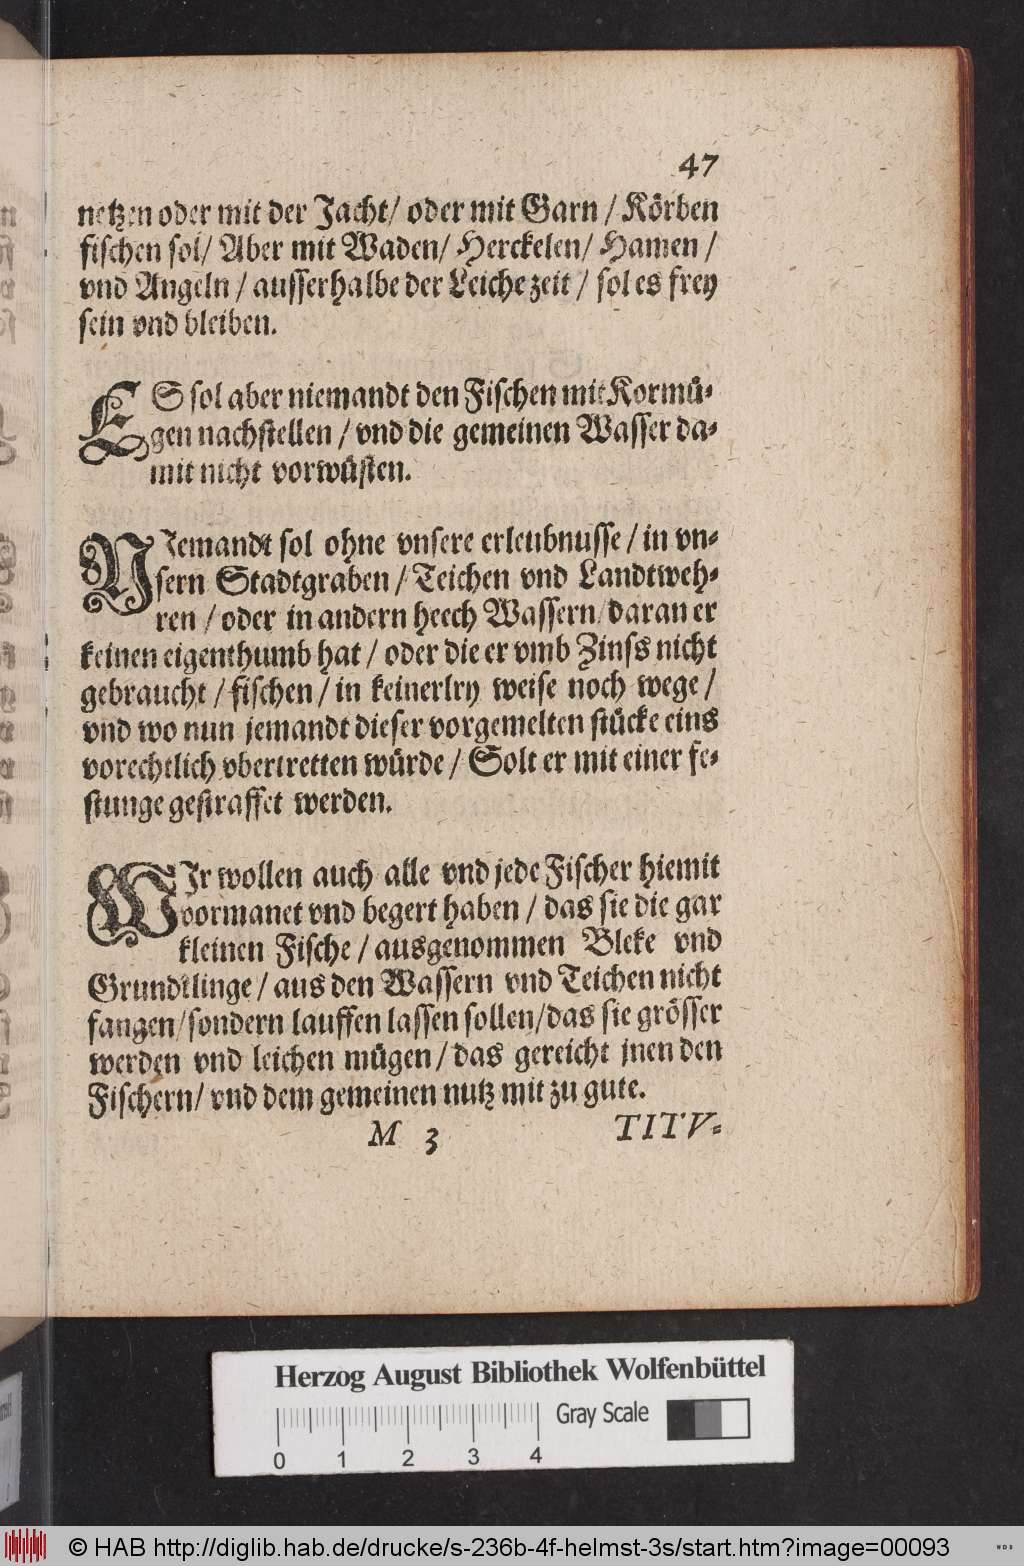 47
netzen oder mit der Jacht/ oder mit Garn / Körben
fischen sol/ Aber mit Waden/ Herckelen/ Hamen /
vnd Angeln / ausserhalbe der Leiche zeit / sol es frey
sein vnd bleiben.
ES sol aber niemandt den Fischen mit Kormü-
gen nachstellen / vnd die gemeinen Wasser da-
mit nicht vorwüsten.
NIemandt sol ohne vnsere erleubnusse / in vn-
sern Stadtgraben / Teichen vnd Landtweh-
ren / oder in andern heech Wassern/ daran er
keinen eigenthumb hat / oder die er vmb Zinss nicht
gebraucht / fischen / in keinerlry weise noch wege /
vnd wo nun jemandt dieser vorgemelten stücke eins
vorechtlich vbertretten würde / Solt er mit einer fe-
stunge gestraffet werden.
WIr wollen auch alle vnd jede Fischer hiemit
vormanet vnd begert haben / das sie die gar
kleinen Fische / ausgenommen Bleke vnd
Grundtlinge / aus den Wassern vnd Teichen nicht
fangen/sondern lauffen lassen sollen/das sie grösser
werden vnd leichen mügen / das gereicht jnen den
Fischern/ vnd dem gemeinen nutz mit zu gute.
M 3 TITV-
Herzog August Bibliothek Wolfenbüttel
Gray Scale
0 1 2 3 4
© HAB http://diglib.hab.de/drucke/s-236b-4f-helmst-3s/start.htm?image=00093